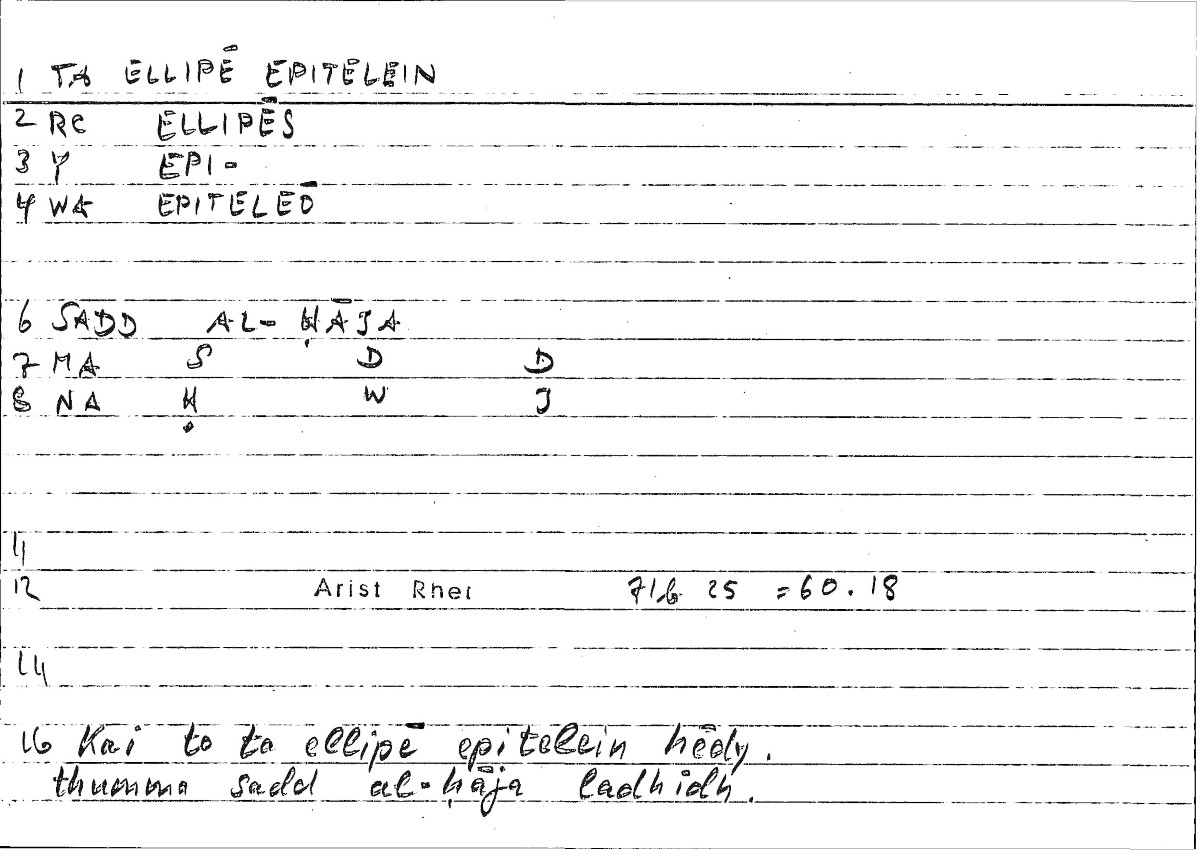 1 TA ELLIPĒ EPITELEIN
2 RC ELLIPĒS
3 Y EPI-
4 WA EPITELEŌ
6 SADD AL-ḤĀJA
7 MA S D D
8 NA Ḥ W J
11
12 Arist Rhet 71b 25 =60.18
14
16 Kai to ta ellipē epitelein hēdy.
thumma sadd al-ḥāja ladhīdh.